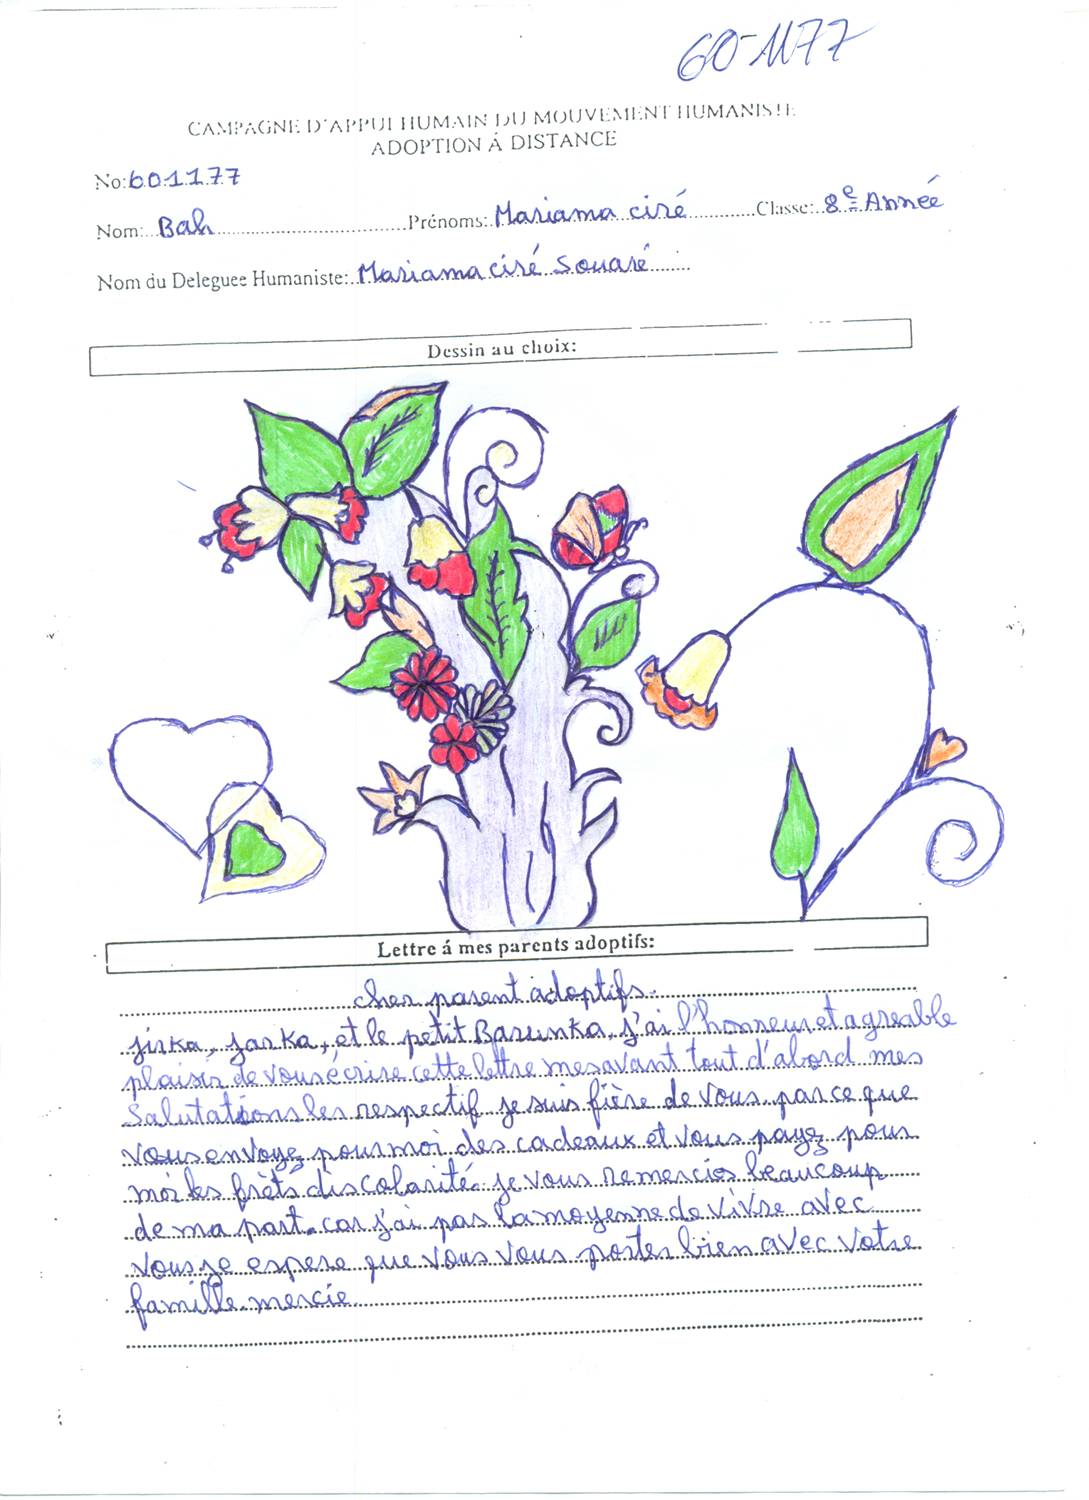 60-1177
CAMPAGNE D'APPUI HUMAIN DU MOUVEMENT HUMANISTE
ADOPTION Á DISTANCE
No:601177
Nom:...Bah...Prénoms:.Mariama ciré...Classe:..8e Année
Nom du Deleguee Humaniste:.Mariama ciré Souaré
Dessin au choix:
Lettre á mes parents adoptifs:
cher parent adoptifs.
jirka, jarka, et le petit Barunka, j'ai l'honneur et agreable
plaisir de vous écrire cette lettre mes avant tout d'abord mes
Salutations les respectif je suis fière de vous parce que
vous envoyez pour moi des cadeaux et vous payez pour
moi les frèts discolarité. je vous remercies beaucoup
de ma part. car j'ai pas la moyenne de vivre avec
vous je espere que vous vous porter bien avec votre
famille. mercie